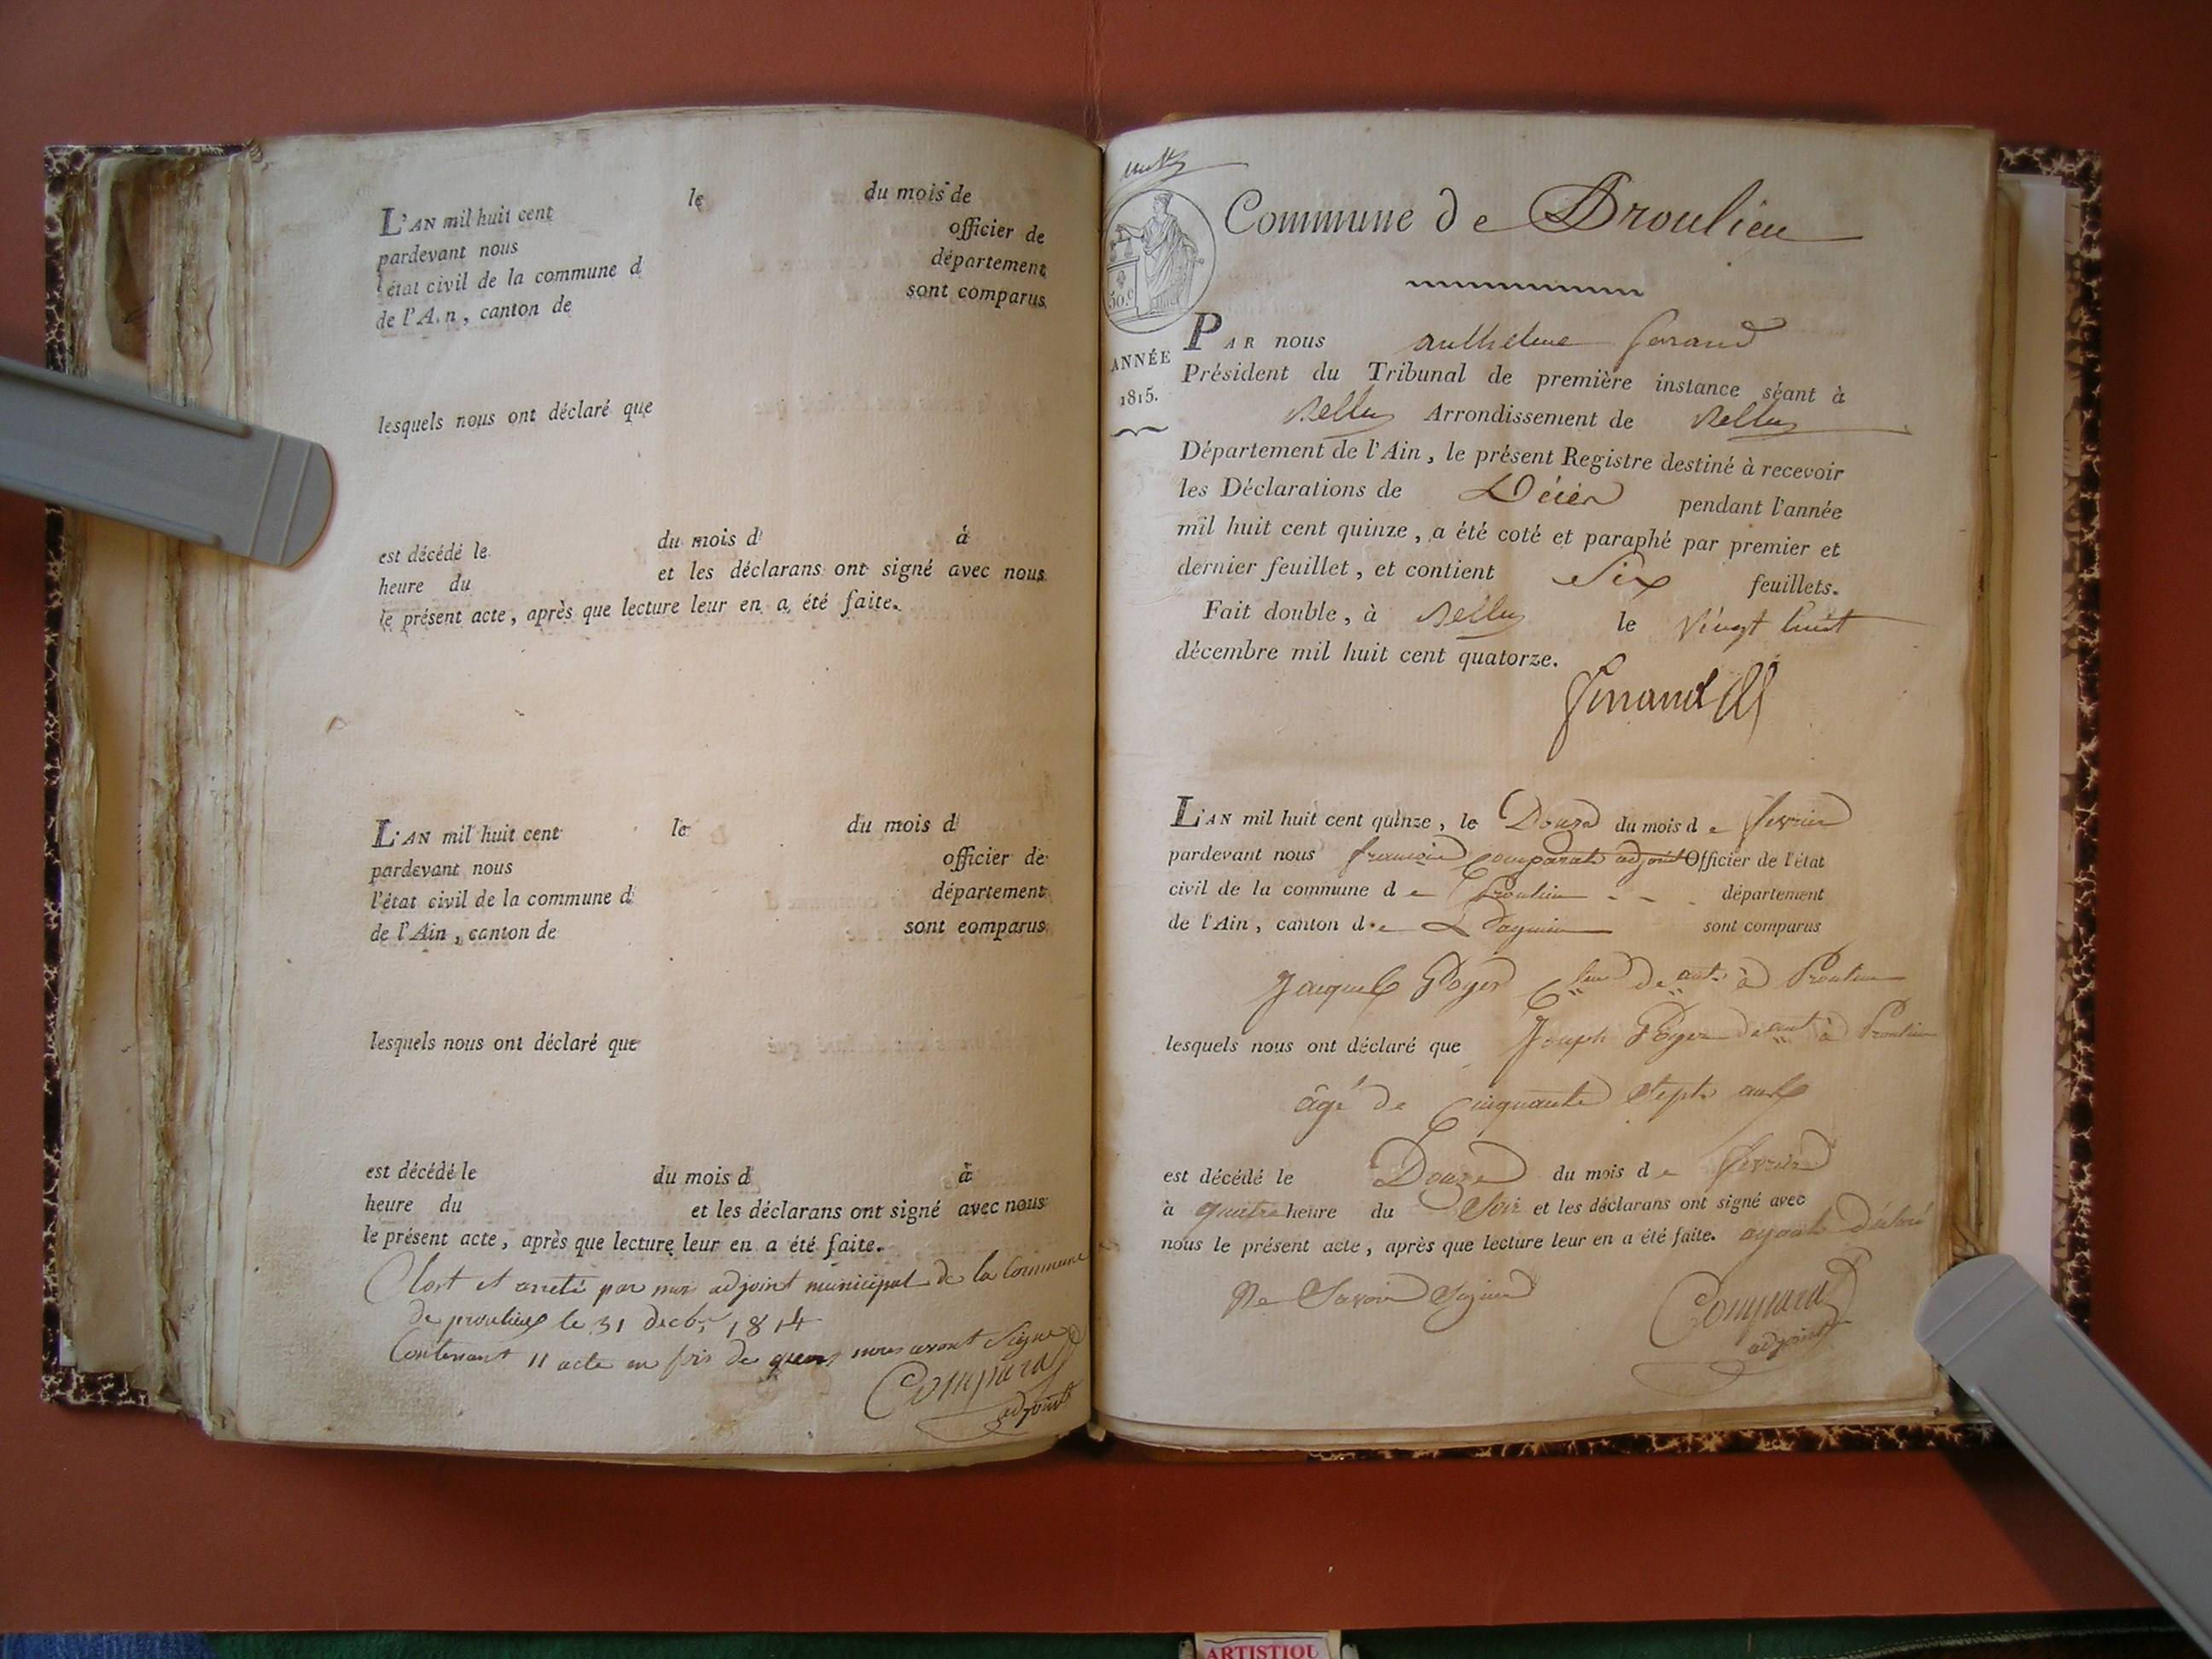 L'AN mil huit cent le du mois de
pardevant nous officier de
l'état civil de la commune d département
de l'Ain, canton de sont comparus
lesquels nous ont déclaré que
est décédé le du mois d à
heure du et les déclarans ont signé avec nous
le présent acte, après que lecture leur en a été faite.
L'AN mil huit cent le du mois d
pardevant nous officier de
l'état civil de la commune d département
de l'Ain, canton de sont comparus
lesquels nous ont déclaré que
est décédé le du mois d à
heure du et les déclarans ont signé avec nous
le présent acte, après que lecture leur en a été faite.
Clost et arreté par moi adjoint municipal de la Commune
de proulieu le 31 decbr 1814
Contenant 11 acte en foi de quoi nous avont signé
Comparat
adjoint
Commune de Proulieu
50.c
ANNÉE
1815.
PAR nous anthelme ferand
Président du Tribunal de première instance séant à
Belley Arrondissement de Belley
Département de l'Ain, le présent Registre destiné à recevoir
les Déclarations de Décès pendant l'année
mil huit cent quinze, a été coté et paraphé par premier et
dernier feuillet, et contient Six feuillets.
Fait double, à Belley le Vingt huit
décembre mil huit cent quatorze.
L'AN mil huit cent quinze, le Douze du mois de fevrier
pardevant nous francois Comparat adjoint Officier de l'état
civil de la commune de Proulieu département
de l'Ain, canton de Lagnieu sont comparus
Jacques Royer de à Proulieu
lesquels nous ont déclaré que Joseph Royer à Proulieu
âgé de Cinquante Sept ans
est décédé le Douze du mois de fevrier
à quatre heure du Soir et les déclarans ont signé avec
nous le présent acte, après que lecture leur en a été faite. ayant déclaré
Ne Savoir Signer
Comparat
adjoint
ARTISTIQU